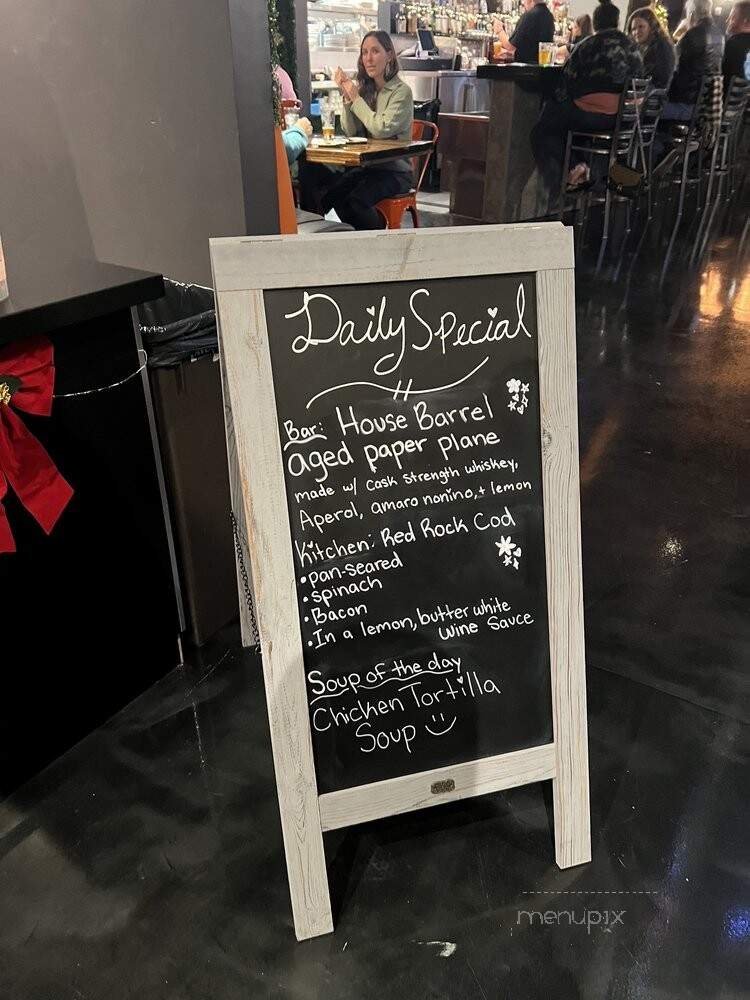 Daily Special
Bar: House Barrel
aged paper plane
made w/ cask strength whiskey,
Aperol, amaro nonino, + lemon
Kitchen: Red Rock Cod
• pan-seared
• spinach
• Bacon
• In a lemon, butter white
wine sauce
Soup of the day
Chicken Tortilla
Soup
menupix